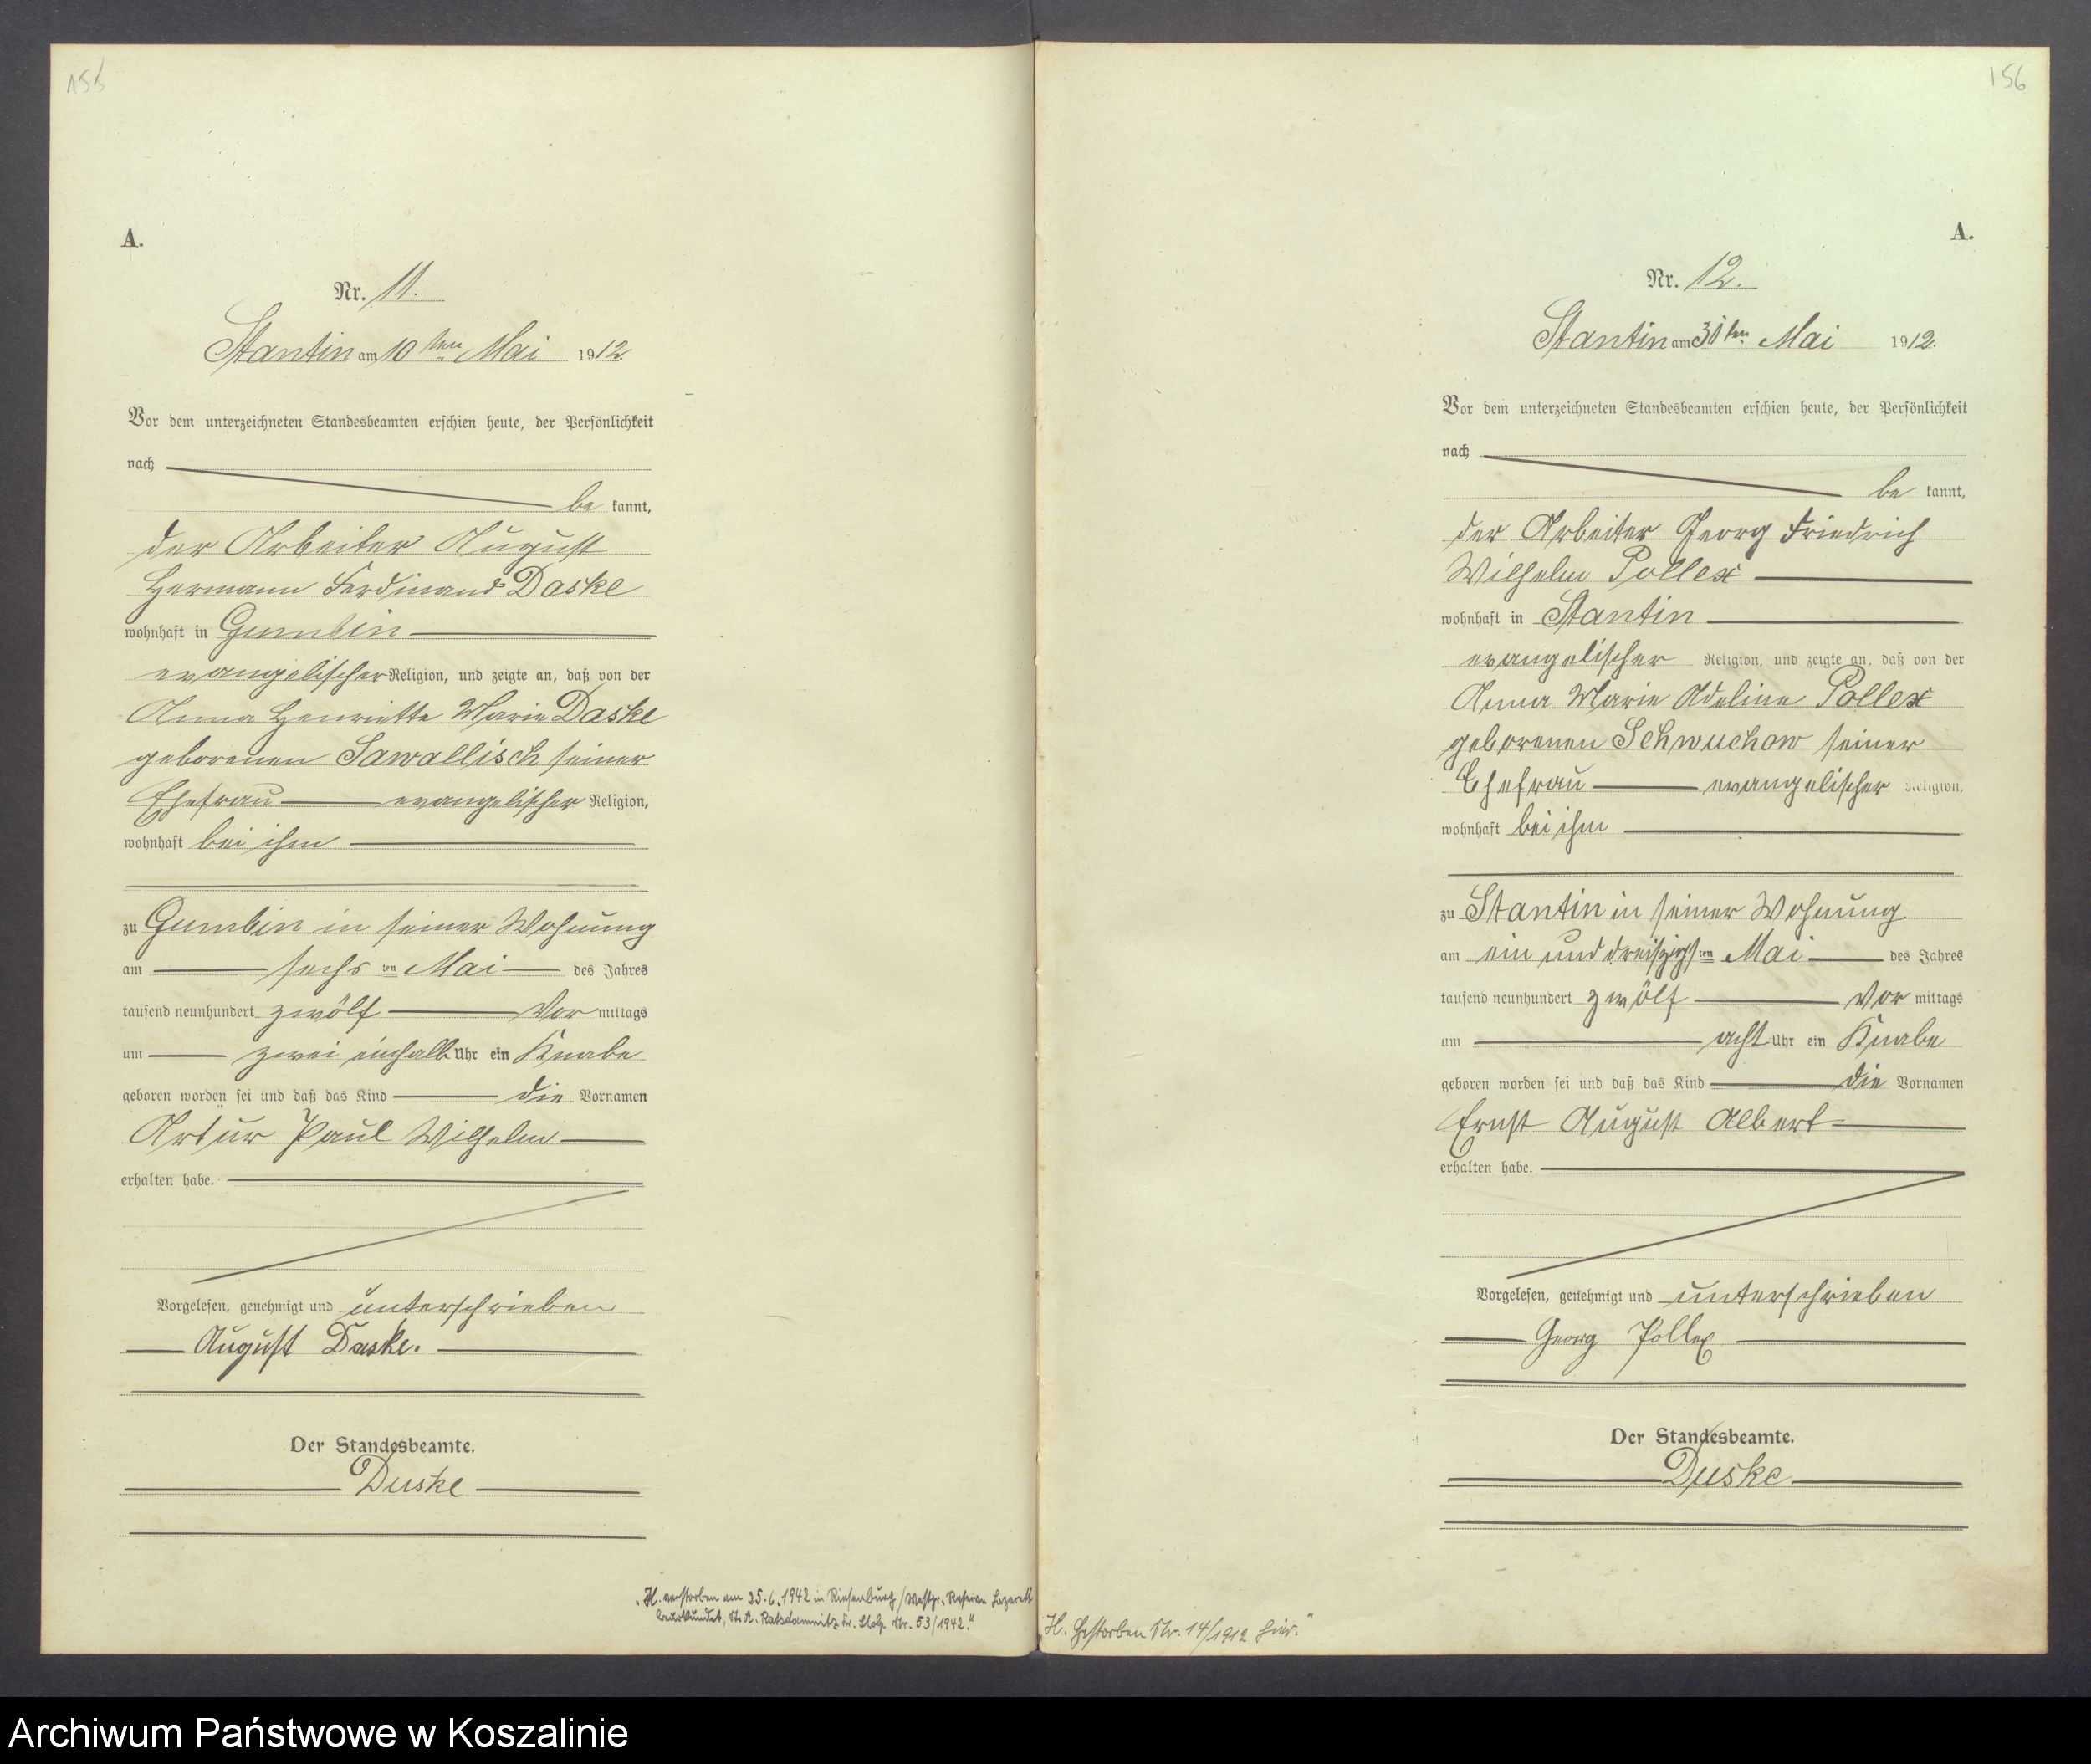 155
A.
Nr. 11.
Stantin am 10ten Mai 1912.
Vor dem unterzeichneten Standesbeamten erschien heute, der Persönlichkeit
nach
be kannt,
der Arbeiter August
Hermann Ferdinand Daske
wohnhaft in Gumbin
evangelischer Religion, und zeigte an, daß von der
Anna Henriette Marie Daske
geborenen Sawallisch seiner
Ehefrau evangelischer Religion,
wohnhaft bei ihm
zu Gumbin in seiner Wohnung
am sechsten Mai des Jahres
tausend neunhundert zwölf Vor mittags
um zwei einhalb Uhr ein Knabe
geboren worden sei und daß das Kind die Vornamen
Artur Paul Wilhelm
erhalten habe.
Vorgelesen, genehmigt und unterschrieben
August Daske.
Der Standesbeamte.
Duske
"H. verstorben am 25.6.1942 in Riesenburg/Westpr. Reserve Lazarett
beurkundet, St.A. Ratsdamnitz Kr. Stolp Nr. 53/1942."
156
A.
Nr. 12.
Stantin am 31ten Mai 1912.
Vor dem unterzeichneten Standesbeamten erschien heute, der Persönlichkeit
nach
be kannt,
der Arbeiter Georg Friedrich
Wilhelm Pollex
wohnhaft in Stantin
evangelischer Religion, und zeigte an, daß von der
Anna Marie Adeline Pollex
geborenen Schwuchow seiner
Ehefrau evangelischer Religion,
wohnhaft bei ihm
zu Stantin in seiner Wohnung
am ein und dreißigsten Mai des Jahres
tausend neunhundert zwölf Vor mittags
um acht Uhr ein Knabe
geboren worden sei und daß das Kind die Vornamen
Ernst August Albert
erhalten habe.
Vorgelesen, genehmigt und unterschrieben
Georg Pollex
Der Standesbeamte.
Duske
"H. Gestorben Nr. 14/1912 hier."
Archiwum Państwowe w Koszalinie